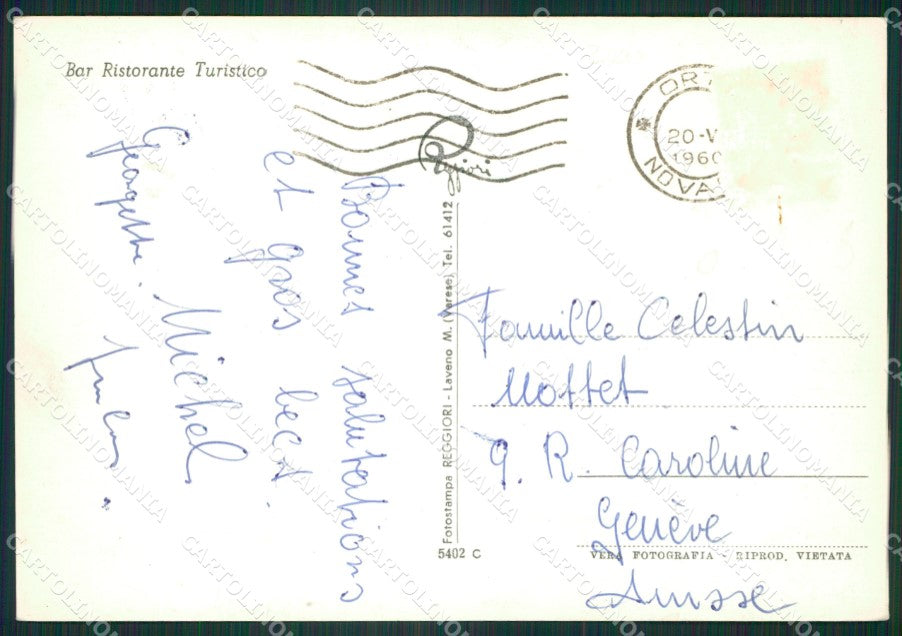 Bar Ristorante Turistico
ORT
20-V
1960
NOVA
Reggiori
Bonnes salutations
et gros becs.
Georgette. Michel
Fotostampa REGGIORI - Laveno M. (Varese) Tel. 61412
5402 C
Famille Celestin
Mottet
9. R. Caroline
Genève
Suisse
VERA FOTOGRAFIA - RIPROD. VIETATA
CARTOLINOMANIA